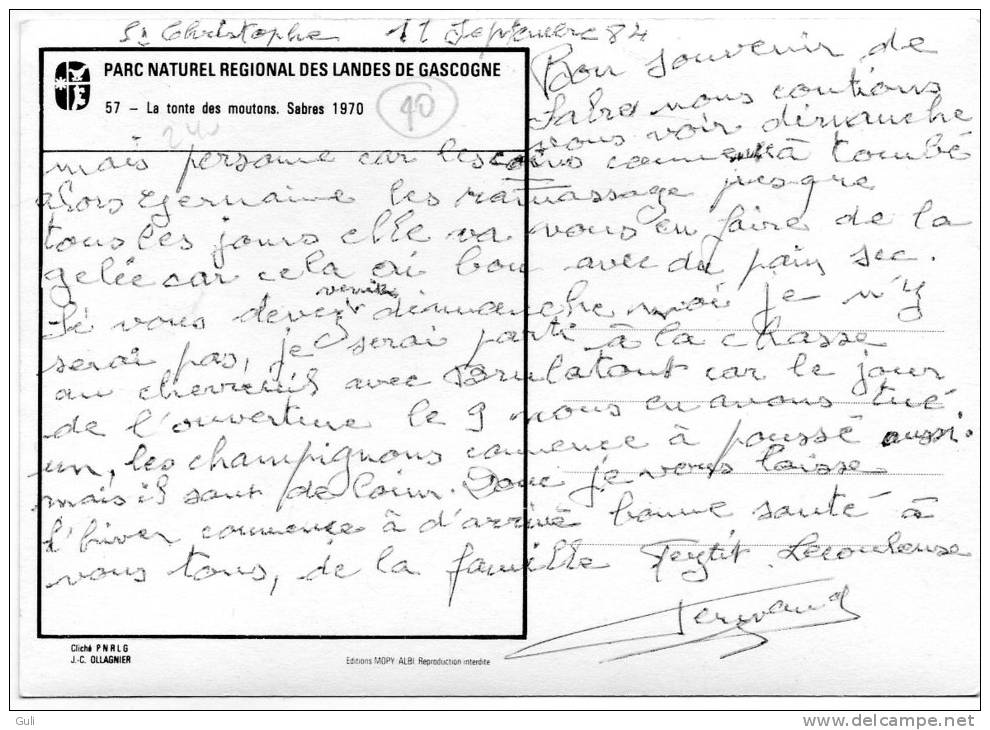 St Christophe 11 Septembre 84
PARC NATUREL REGIONAL DES LANDES DE GASCOGNE
57 – La tonte des moutons. Sabres 1970
40
240
Bon souvenir de
Sabre nous contions
vous voir dimanche
mais persome car les coins commence à tombé
alors germaine les ramassage jusque
tous les jours elle va vous en faire de la
gelée car cela ai bon avec du pain sec.
Si vous devez venire dimanche moi je n'y
serai pas, je serai parti à la chasse
au chevreuil avec car le jour
de l'ouverture le 9 nous en avons tué
un, les champignons comence à poussé aussi.
mais il sont de loin. Donc je vous laisse
l'hiver commence à d'arrivé bonne santé à
vous tous, de la famille
Fernand
Cliché P N R L G
J.-C. OLLAGNIER
Editions MOPY ALBI. Reproduction interdite
Guli
www.delcampe.net